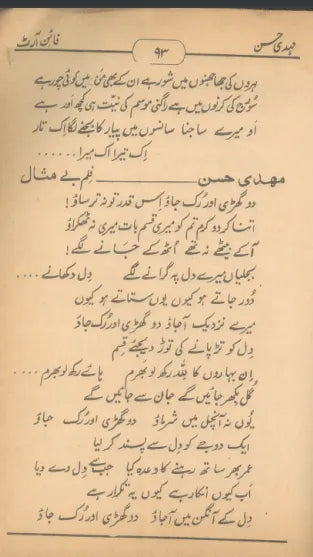 مہدی حسن ۹۳ فائن آرٹ
لہروں کی جھانجھنوں میں شور ہے ان کے بھی من میں کوئی چور ہے
سورج کی کرنوں میں ہے راگنی موسم کی نیت ہی کچھ اور ہے
او میرے ساجنا سانسوں میں پیار کا بجنے لگا اک تار
اک تیرا اک میرا ......
مہدی حسن فلم بے مثال
دو گھڑی اور رک جاؤ اس قدر تو نہ ترساؤ!
اتنا کر دو کرم تم کو میری قسم بات میری نہ ٹھکراؤ
آکے بیٹھے نہ تھے اٹھ کے جانے لگے!
بجلیاں میرے دل پہ گرانے لگے دل دکھانے ....
دور جاتے ہو کیوں یوں ستاتے ہو کیوں
میرے نزدیک آجاؤ دو گھڑی اور رک جاؤ
دل کو تڑپانے کی توڑ دیجئے قسم
ان بہاروں کا للہ رکھ لو بھرم ہائے رکھ لو بھرم ....
گل بکھر جائیں گے جان سے جائیں گے
یوں نہ آنچل میں شرماؤ دو گھڑی اور رک جاؤ
ایک دوجے کو دل سے پسند کر لیا
عمر بھر ساتھ رہنے کا وعدہ کیا جب سے دل دے دیا
اب کیوں انکار ہے کیوں یہ تکرار ہے
دل کے آنگن میں آجاؤ دو گھڑی اور رک جاؤ